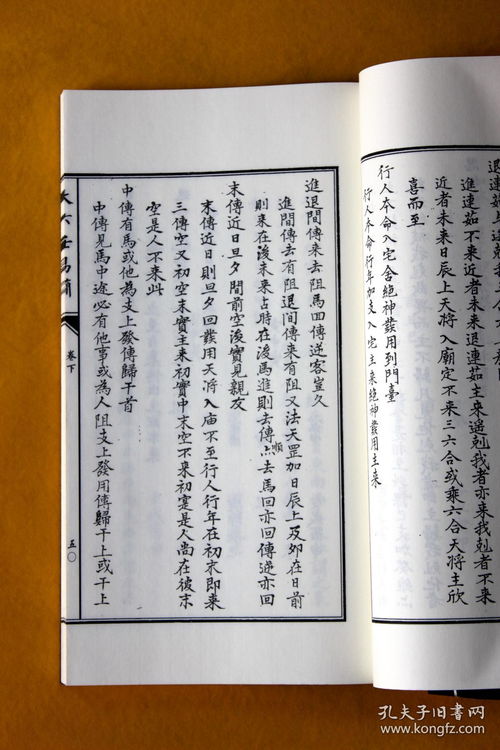 進連茹不來近者未來退連茹主來遥剋我者亦來我剋者
近者未來日辰上天將入廟定不來三六合或乘六合天將主欣
喜而至
行人本命入宅舍絕神發用到門臺
行人本命行年加支入宅主來絕神發用主來
進退間傳來去阻馬回傳送客豈久
進間傳去有阻退間傳來有阻又法天罡加日辰上及夘在日前
則來在後未來占時在後馬進則去傳順亦去馬回亦回傳逆亦回
末傳近日旦夕間前空後實見親友
末傳近日則旦夕回發用天將入廟不至行人行年在初末即來
三傳空又初空末實主來初實中末空不來初是人尚在彼末
空是人不來此
中傳有馬或他為支上發傳歸干首
中傳見馬中途必有他事或為人阻支上發用傳歸干上或干上
大六壬易簡
卷下
五〇
孔夫子旧書网
www.kongfz.com